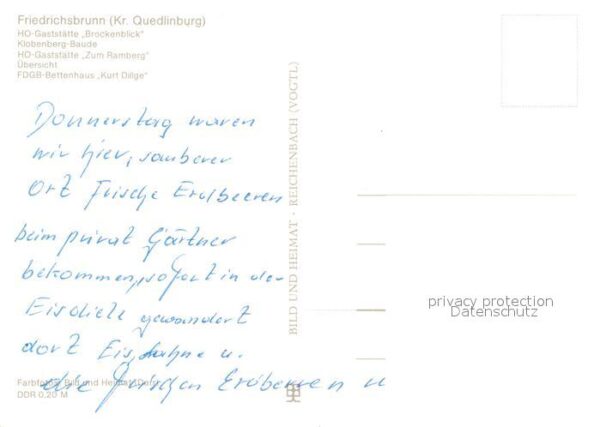 Friedrichsbrunn (Kr. Quedlinburg)
HO-Gaststätte „Brockenblick“
Klobenberg-Baude
HO-Gaststätte „Zum Ramberg“
Übersicht
FDGB-Bettenhaus „Kurt Dillge“
Donnerstag waren
wir hier, sauberer
Ort frische Erdbeeren
beim privat Gärtner
bekommen, sofort in der
Eisdiele gewandert
dort Eis, Sahne u.
die frischen Erdbeeren u
Farbfoto: Bild und Heimat
DDR 0,20 M
BILD UND HEIMAT · REICHENBACH (VOGTL)
privacy protection
Datenschutz